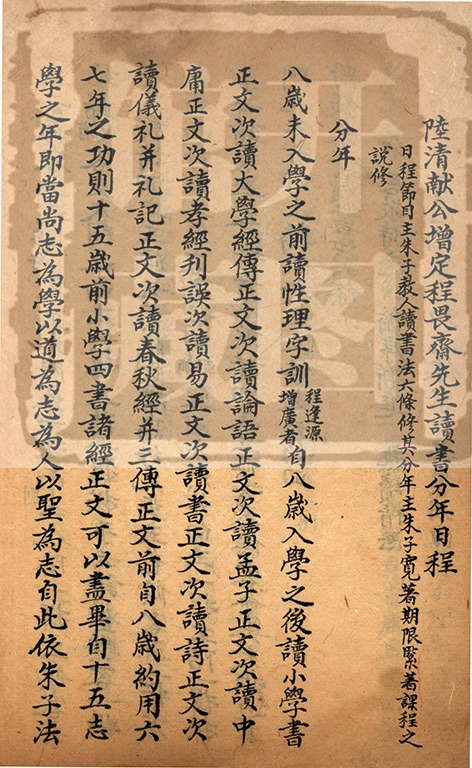 陸清献公增定程畏齋先生讀書分年日程
日程節目主朱子教人讀書法六條修其分年主朱子寬著期限緊著課程之
説修
分年
八歲未入學之前讀性理字訓程逢源增廣者自八歲入學之後讀小學書
正文次讀大學經傳正文次讀論語正文次讀孟子正文次讀中
庸正文次讀孝經刊誤次讀易正文次讀書正文次讀詩正文次
讀儀礼并礼記正文次讀春秋經并三傳正文前自八歲約用六
七年之功則十五歲前小學四書諸經正文可以盡畢自十五志
學之年即當尚志為學以道為志為人以聖為志自此依朱子法